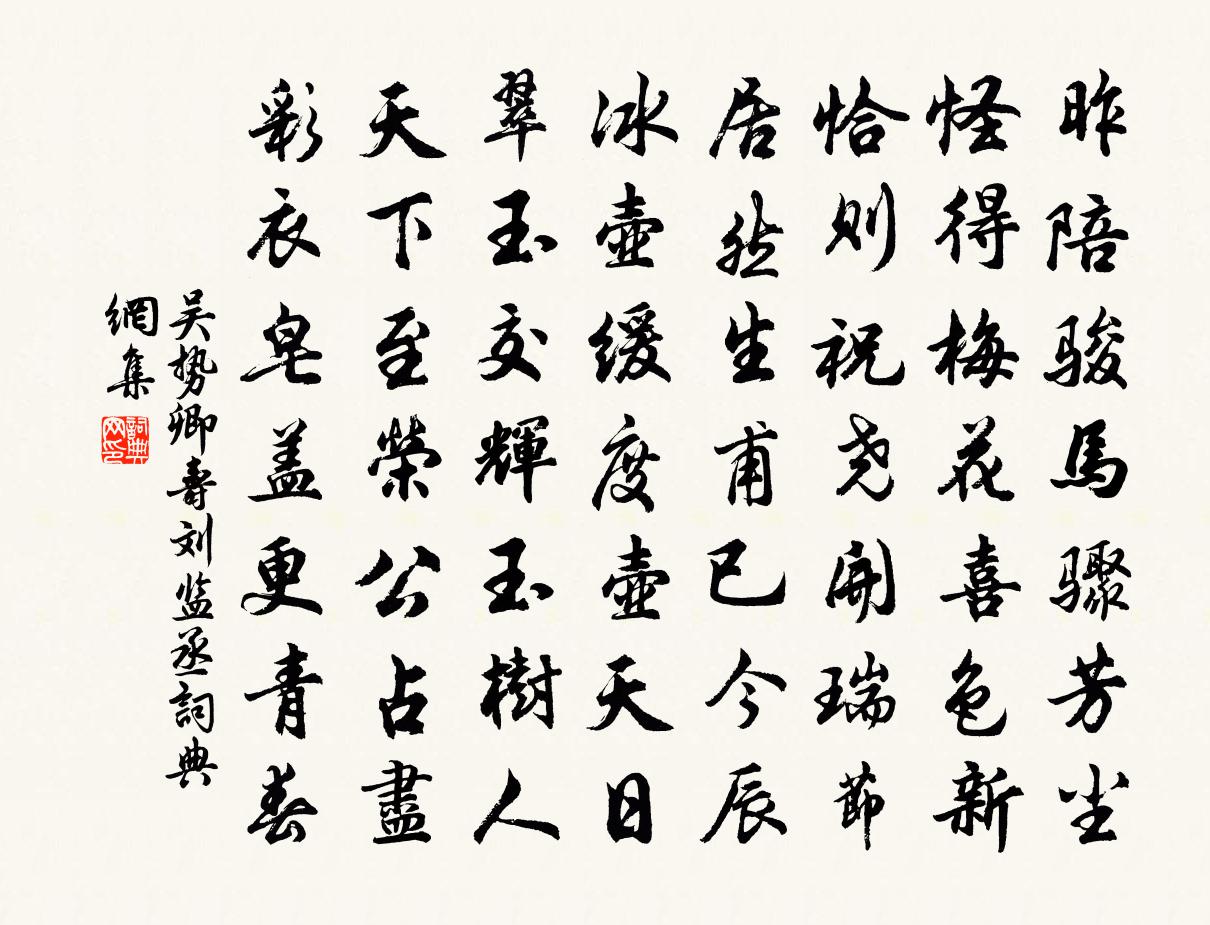 昨陪骏馬骤芳尘
怪得梅花喜色新
恰则祝尧開瑞節
居然生甫已今辰
冰壺缓度壺天日
翠玉交輝玉樹人
天下至榮公占盡
彩衣皂盖更青春
吴势卿壽刘监丞詞典
網集
詞典
网印